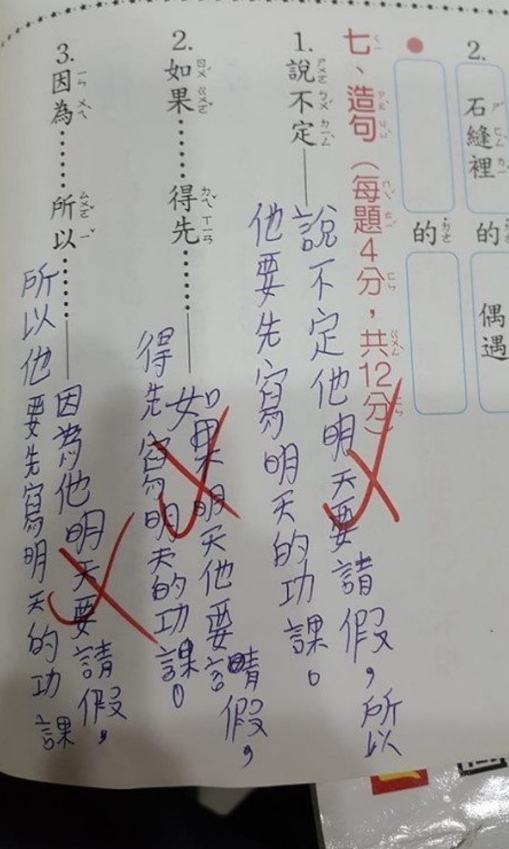 2.
石縫裡
的
偶遇
的
七、造句（每題4分，共12分）
1. 說不定——
說不定他明天要請假，所以
他要先寫明天的功課。
2. 如果……得先……——
如果明天他要請假，
得先寫明天的功課。
3. 因為……所以……——
因為他明天要請假，
所以他要先寫明天的功課